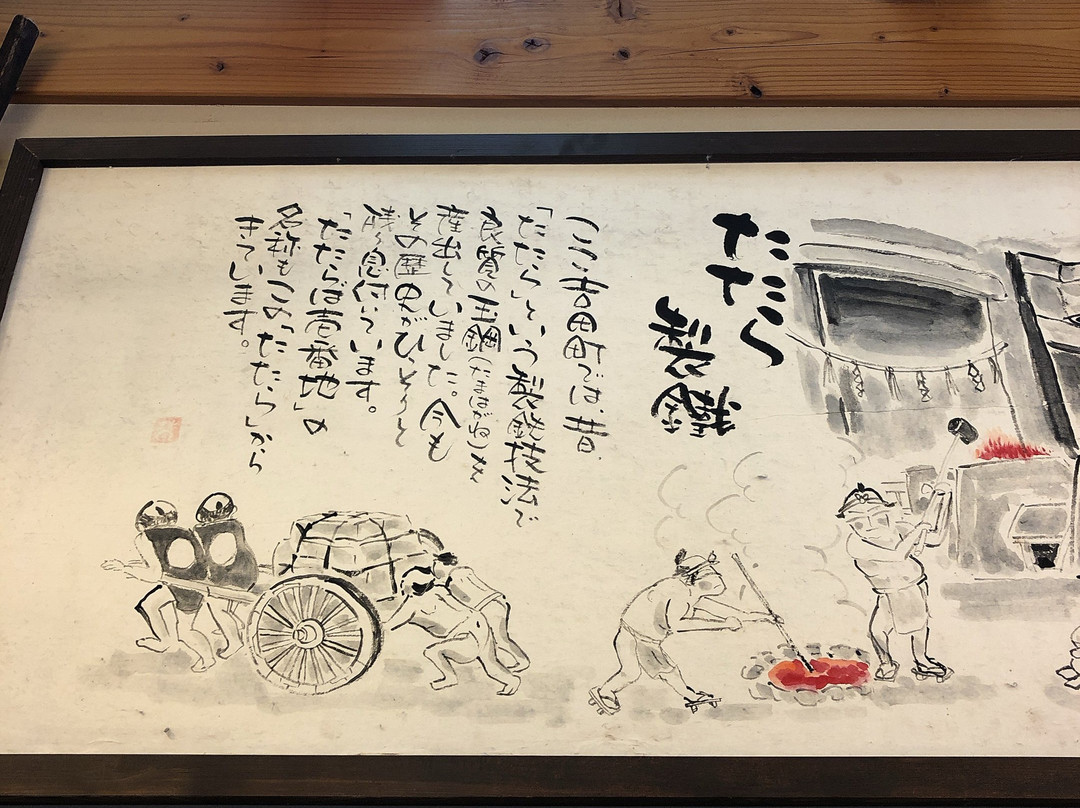 たたら
製鐵
ここ吉田町では、昔
「たたら」という製鉄技法で
良質の玉鋼(たまはがね)を
産出していました。今も
その歴史がひっそりと
残り息付いています。
「たたらば壱番地」の
名称もこの「たたら」から
きています。